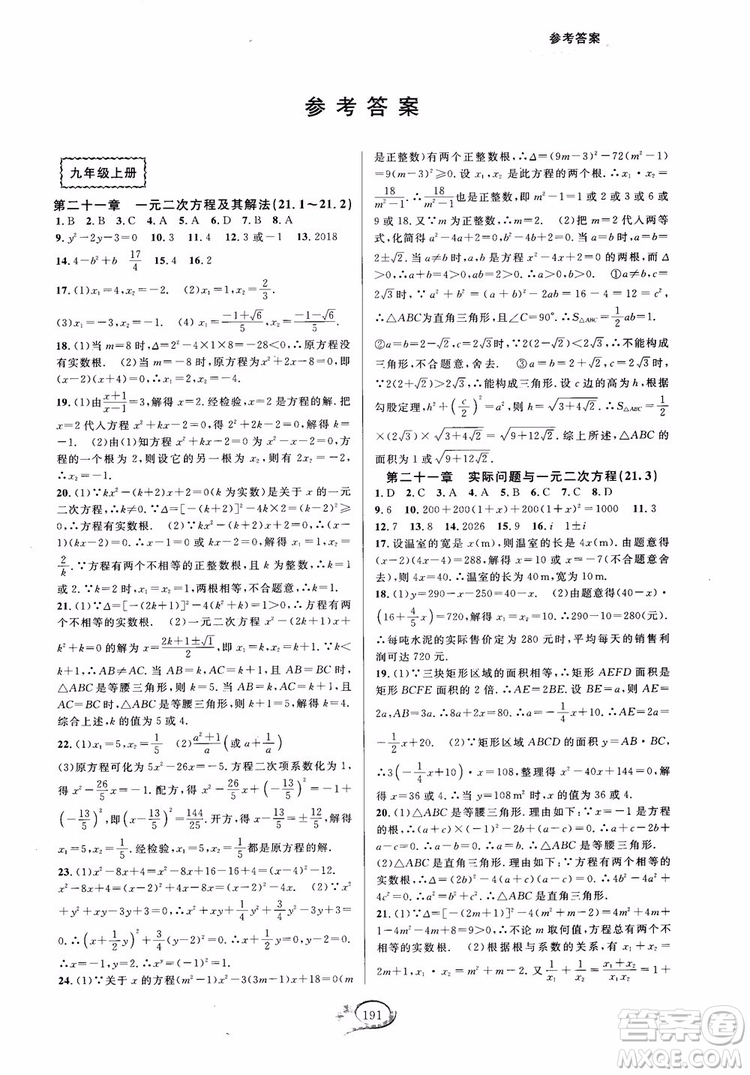 参考答案
参考答案
九年级上册
第二十一章 一元二次方程及其解法(21.1～21.2)
1.B 2.B 3.C 4.A 5.A 6.D 7.B 8.A
9.y²-2y-3=0 10.3 11.4 12.3或-1 13.2018
14.4-b²+b 17/4 15.4 16.2
17.(1)x₁=4,x₂=-2. (2)x₁=2,x₂=2/3.
(3)x₁=-2,x₂=-1. (4)x₁=(-1+√6)/5,x₂=(-1-√6)/5.
18.(1)当m=8时,b²-4ac=2²-4×8=-28<0,∴原方程没
有实数根. (2)当m=-8时,原方程即为x²+2x-8=0.
即(x-2)(x+4)=0,∴x₁=2,x₂=-4.
19.(1)由(x+1)/(x-1)=3,解得x=2.经检验,x=2是方程的解.把
x=2代入方程x²+kx-2=0,得2²+2k-2=0,解得k=
-1. (2)由(1)知方程x²+kx-2=0化为x²-x-2=0.方程
的一个根为2,则设它的另一个根为x₂,则有2x₂=-2,解得
x₂=-1.
20.(1)∵kx²-(k+2)x+2=0(k为实数)是关于x的一元
二次方程,∴k≠0.∵Δ=[-(k+2)]²-4k×2=(k-2)²≥
0,∴方程总有实数根. (2)方程kx²-(k+2)x+2=0可化为
(kx-2)(x-1)=0,∴kx-2=0或x-1=0,解得x₁=1,x₂=
2/k.∵方程有两个不相等的正整数根,且k为整数,∴k=1或
k=2.当k=2时,x₁=x₂=1,不合题意,舍去.∴k=1.
21.(1)∵Δ=[-(2k+1)]²-4(k²+k)=1>0,∴方程有两
个不相等的实数根. (2)∵方程x²-(2k+1)x+k²+k=0的
解为x=(2k+1±√1)/2,∴x₁=k,x₂=k+1.∵k<k+1,∴AB≠
AC.∵△ABC是等腰三角形,∴当AB=k,AC=k+1,且
AB=BC时,△ABC是等腰三角形,则k=5;当AB=k,AC=
k+1,且AC=BC时,△ABC是等腰三角形,则k+1=5,解得k=4.
综合上述,k的值为5或4.
22.(1)x₁=5,x₂=1/5 (2)(a²+1)/a(或a+1/a)
(3)原方程可化为5x²-26x=-5.方程二次项系数化为1,得
x²-26/5x=-1.配方,得x²-26/5x+(-13/5)²=-1+
(-13/5)²,即(x-13/5)²=144/25.开方,得x-13/5=±12/5,解得
x₁=5,x₂=1/5.经检验,x₁=5,x₂=1/5都是原方程的解.
23.(1)x²-8x-4=x²-8x+16-16-4=(x-4)²-20.
(2)∵x²+y²+xy-3y+3=0,∴x²+xy+1/4y²+3/4y²-3y+3
=0,∴(x+1/2y)²+3/4(y-2)²=0,∴x+1/2y=0,y-2=0,
∴x=-1,y=2,∴xʸ=(-1)²=1.
24.(1)∵关于x的方程(m²-1)x²-3(3m-1)x+18=0(m
是正整数)有两个正整数根,∴Δ=(9m-3)²-72(m²-1)
=9(m-3)²≥0.设x₁,x₂是此方程的两个根,∴x₁·x₂=
18/(m²-1),∴18/(m²-1)也是正整数,即m²-1=1或2或3或6或
9或18.又∵m为正整数,∴m=2. (2)把m=2代入两等
式,化简得a²-4a+2=0,b²-4b+2=0.当a=b时,a=b=
2±√2.当a≠b时,a,b是方程x²-4x+2=0的两根,而Δ>0,
由根与系数的关系得,a+b=4>0,ab=2>0,则a>0,b>0.
①当a≠b,c=2√3时,∵a²+b²=(a+b)²-2ab=16-4=12
=c²,∴△ABC为直角三角形,且∠C=90°,∴S△ABC=1/2ab=1.
②当a=b=2-√2,c=2√3时,∵2(2-√2)<2√3,∴不能构成
三角形,不合题意,舍去. ③当a=b=2+√2,c=2√3时,
∵2(2+√2)>2√3,∴能构成三角形.设c边的高为h,根据
勾股定理,h²+(c/2)²=a²,∴h=√(3+4√2).∴S△ABC=1/2
×(2√3)×√(3+4√2)=√(9+12√2).综上所述,△ABC的面积
为1或√(9+12√2).
第二十一章 实际问题与一元二次方程(21.3)
1.D 2.C 3.A 4.B 5.C 6.B 7.C 8.D
9.6 10.200+200(1+x)+200(1+x)²=1000 11.3
12.7 13.8 14.2026 15.9 16.-i 1±i
17.设温室的宽为x(m),则温室的长为4x(m).根据题意,
得(x-2)(4x-4)=288,解得x₁=-7(不合题意,舍去),
x₂=10.∴4x=40.∴温室的长为40m,宽为10m.
18.(1)y=290-x-250=40-x. (2)由题意,得(40-x)·
(16+4/5x)=720,解得x₁=x₂=10.∴290-10=280(元).
∴每吨水泥的实际售价定为280元时,平均每天的销售利
润可达720元.
19.(1)∵三块矩形区域的面积相等,∴矩形AEFD面积是
矩形BCFE面积的2倍.∴AE=2BE.设BE=a,则AE=
2a.∴8a+2x=80.∴a=-1/4x+10.∴AE=2a=-1/2x+
20. (2)∵矩形区域ABCD的面积为300m²,AB=3a,
∴3(-1/4x+10)x=300.整理得x²-40x+400=0,解得
x=20. (3)根据题意,得3(-1/4x+10)x=108,解得x=4
或x=36.当x=4时,BC=4m;当x=36时,BC=36m,均符合
题意.∴若使矩形区域ABCD的面积为108m²,x的值为4或36.
20.(1)△ABC是等腰三角形.理由如下:∵x=-1是方程
的根,∴(a+c)×(-1)²-2b+(a-c)=0.∴a+c-2b+
a-c=0.∴a-b=0.∴a=b.∴△ABC是等腰三角形.
(2)△ABC是直角三角形.理由如下:∵方程有两个相等的
实数根,∴(2b)²-4(a+c)(a-c)=0.∴4b²-4a²+4c²
=0.∴a²=b²+c².∴△ABC是直角三角形.
21.(1)∵Δ=[-(2m+1)]²-4(m²+m)=4m²+4m+1-
4m²-4m=1>0,∴无论实数m取何值,方程总有两个
不相等的实数根. (2)根据根与系数的关系,有x₁+x₂=
2m+1,x₁·x₂=m²+m.又∵1/x₁+1/x₂=(x₁+x₂)/(x₁x₂),∴2m+1
191
答案圈
MXQE.COM